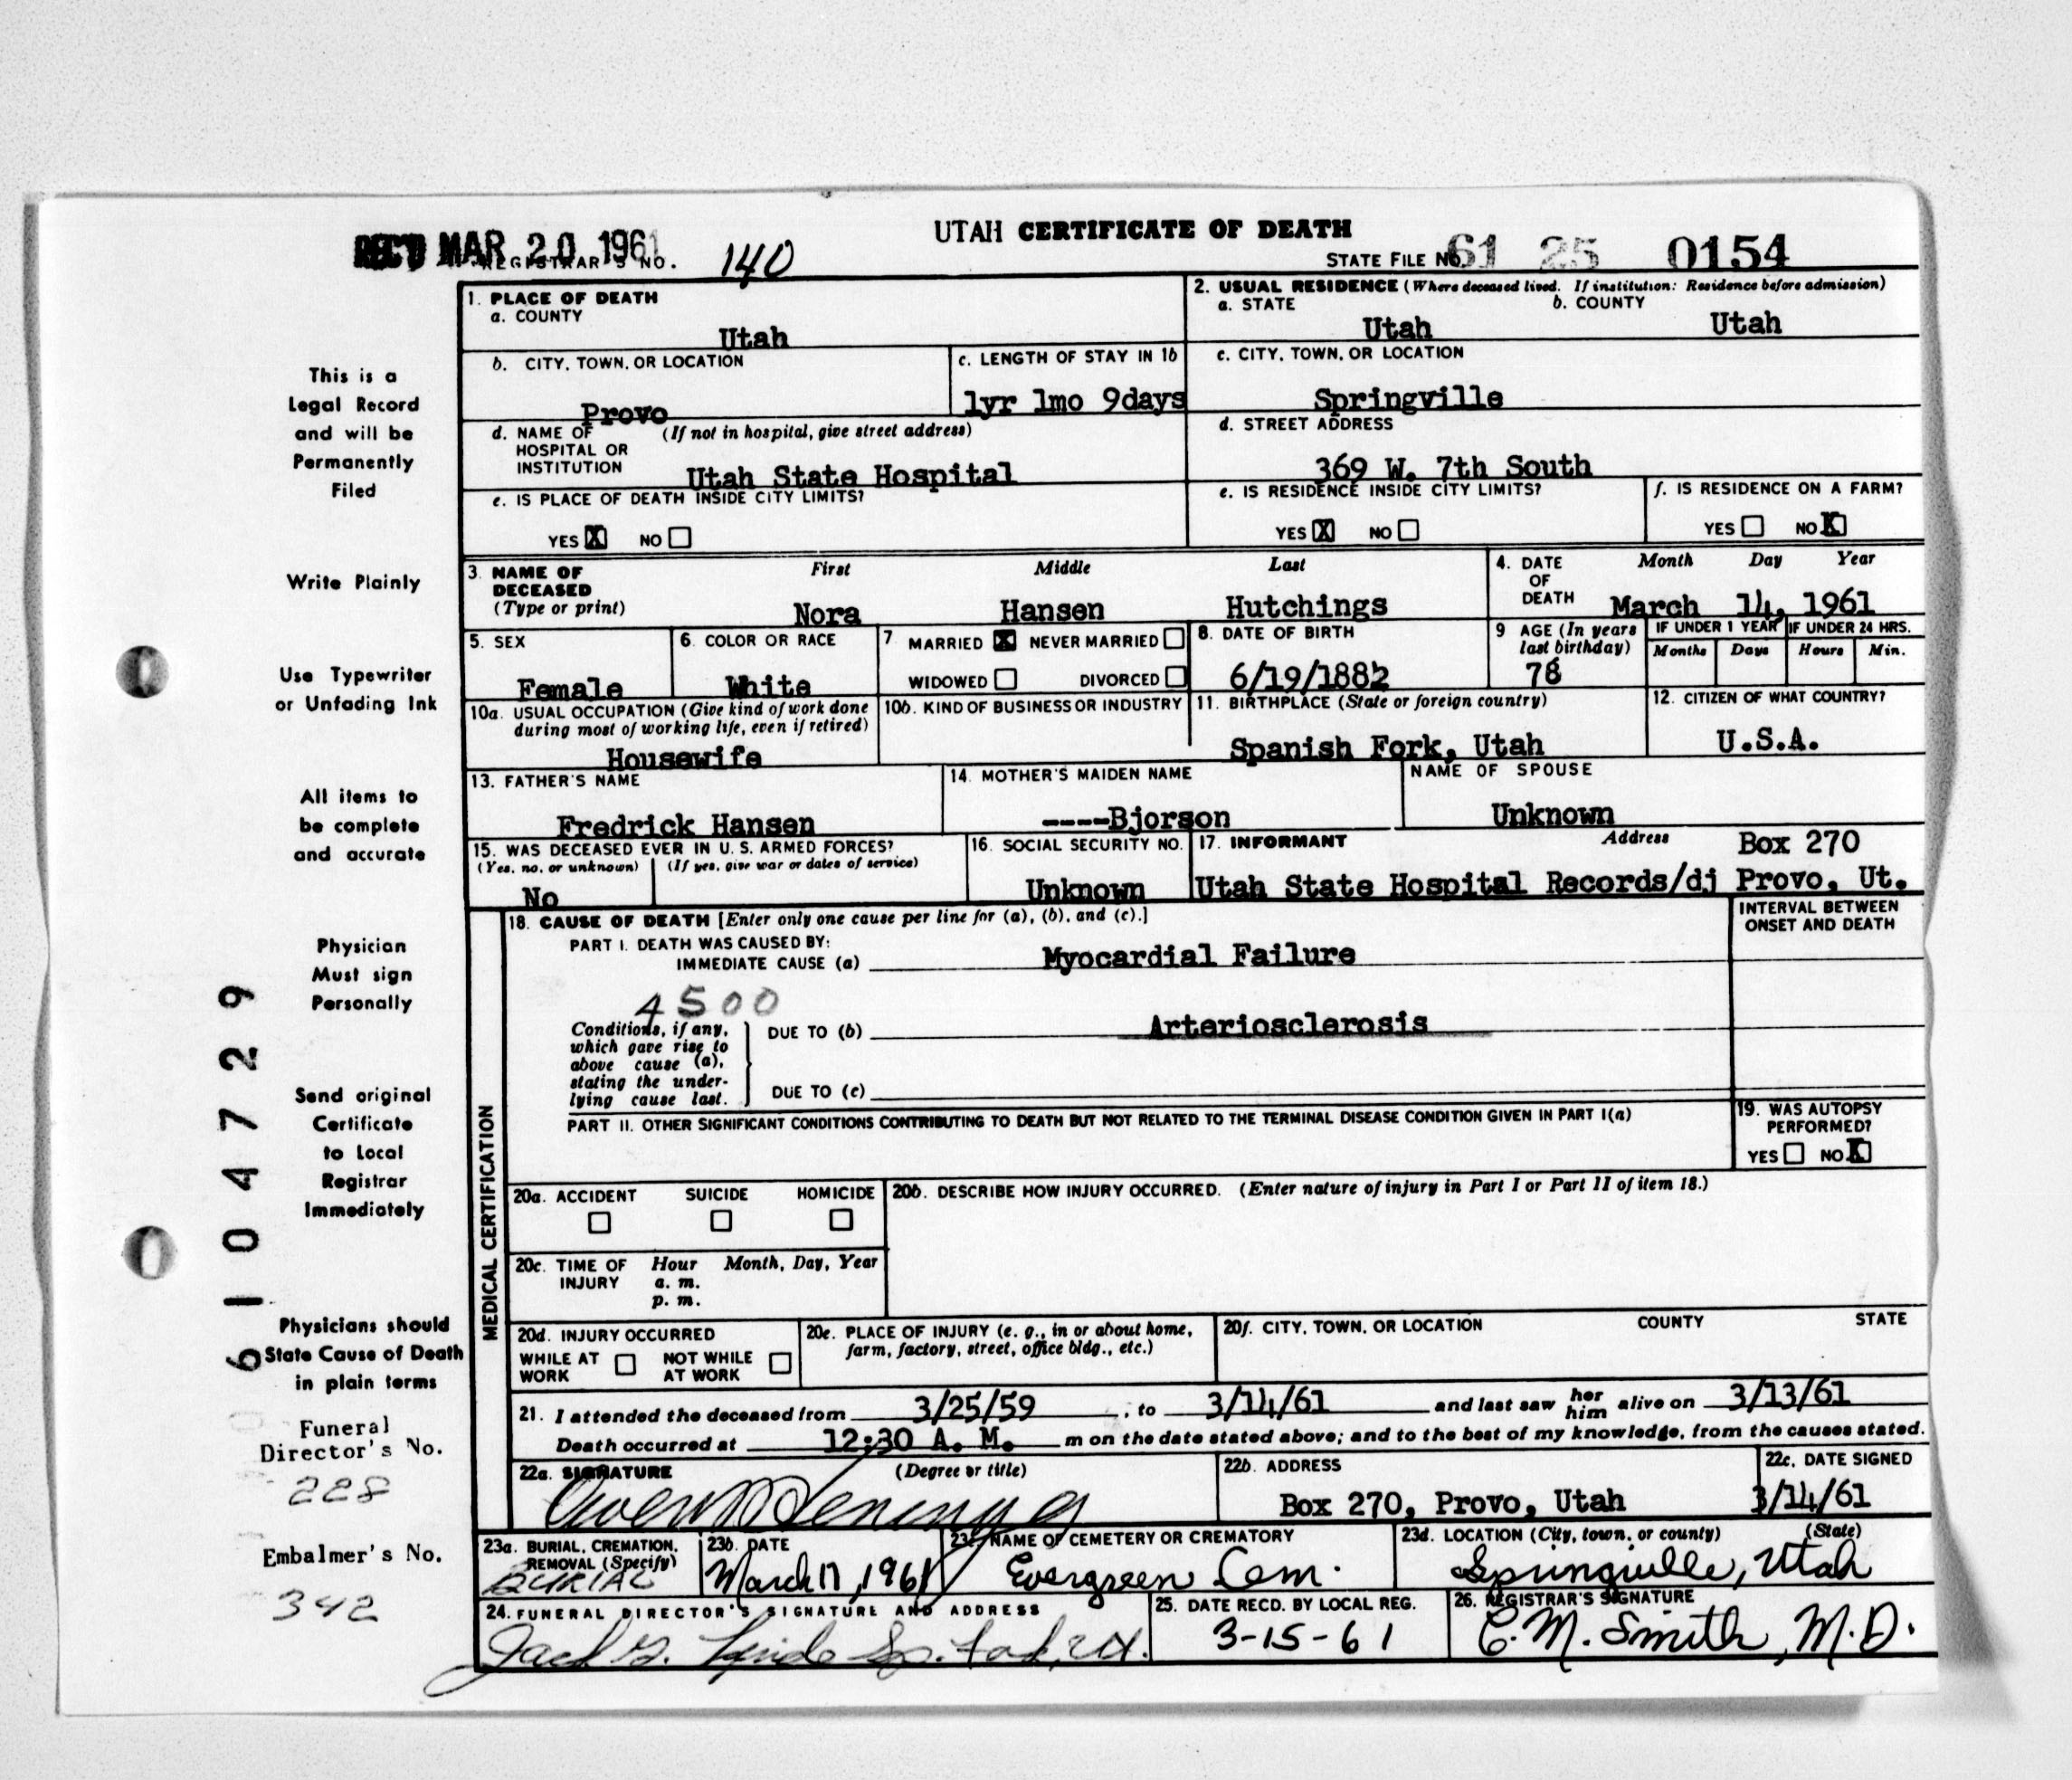 UTAH CERTIFICATE OF DEATH
REC'D MAR 20 1961
REGISTRAR'S NO. 140
STATE FILE NO. 61 25 0154
This is a
Legal Record
and will be
Permanently
Filed
Write Plainly
Use Typewriter
or Unfading Ink
All items to
be complete
and accurate
Physician
Must sign
Personally
Send original
Certificate
to Local
Registrar
Immediately
Physicians should
State Cause of Death
in plain terms
Funeral
Director's No.
228
Embalmer's No.
342
6104729
1. PLACE OF DEATH
a. COUNTY
Utah
b. CITY, TOWN, OR LOCATION
Provo
c. LENGTH OF STAY IN 1b
1yr 1mo 9days
d. NAME OF (If not in hospital, give street address)
HOSPITAL OR
INSTITUTION
Utah State Hospital
e. IS PLACE OF DEATH INSIDE CITY LIMITS?
YES X NO
2. USUAL RESIDENCE (Where deceased lived. If institution: Residence before admission)
a. STATE
Utah
b. COUNTY
Utah
c. CITY, TOWN, OR LOCATION
Springville
d. STREET ADDRESS
369 W. 7th South
e. IS RESIDENCE INSIDE CITY LIMITS?
YES X NO
f. IS RESIDENCE ON A FARM?
YES NO X
3. NAME OF
DECEASED
(Type or print)
First Middle Last
Nora Hansen Hutchings
4. DATE
OF
DEATH
Month Day Year
March 14, 1961
5. SEX
Female
6. COLOR OR RACE
White
7 MARRIED X NEVER MARRIED
WIDOWED DIVORCED
8. DATE OF BIRTH
6/19/1882
9 AGE (In years
last birthday)
78
IF UNDER 1 YEAR
Months Days
IF UNDER 24 HRS.
Hours Min.
10a. USUAL OCCUPATION (Give kind of work done
during most of working life, even if retired)
Housewife
10b. KIND OF BUSINESS OR INDUSTRY
11. BIRTHPLACE (State or foreign country)
Spanish Fork, Utah
12. CITIZEN OF WHAT COUNTRY?
U.S.A.
13. FATHER'S NAME
Fredrick Hansen
14. MOTHER'S MAIDEN NAME
----Bjorson
NAME OF SPOUSE
Unknown
15. WAS DECEASED EVER IN U. S. ARMED FORCES?
(Yes, no, or unknown) (If yes, give war or dates of service)
No
16. SOCIAL SECURITY NO.
Unknown
17. INFORMANT Address
Box 270
Utah State Hospital Records/dj Provo, Ut.
MEDICAL CERTIFICATION
18. CAUSE OF DEATH [Enter only one cause per line for (a), (b), and (c).]
INTERVAL BETWEEN
ONSET AND DEATH
PART I. DEATH WAS CAUSED BY:
IMMEDIATE CAUSE (a) Myocardial Failure
4500
Conditions, if any,
which gave rise to
above cause (a),
stating the under-
lying cause last.
DUE TO (b) Arteriosclerosis
DUE TO (c)
PART II. OTHER SIGNIFICANT CONDITIONS CONTRIBUTING TO DEATH BUT NOT RELATED TO THE TERMINAL DISEASE CONDITION GIVEN IN PART I(a)
19. WAS AUTOPSY
PERFORMED?
YES NO X
20a. ACCIDENT SUICIDE HOMICIDE
20b. DESCRIBE HOW INJURY OCCURRED. (Enter nature of injury in Part I or Part II of item 18.)
20c. TIME OF
INJURY
Hour Month, Day, Year
a. m.
p. m.
20d. INJURY OCCURRED
WHILE AT
WORK
NOT WHILE
AT WORK
20e. PLACE OF INJURY (e. g., in or about home,
farm, factory, street, office bldg., etc.)
20f. CITY, TOWN, OR LOCATION COUNTY STATE
21. I attended the deceased from 3/25/59, to 3/14/61 and last saw her him alive on 3/13/61
Death occurred at 12:30 A. M. m on the date stated above; and to the best of my knowledge, from the causes stated.
22a. SIGNATURE (Degree or title)
Owen
22b. ADDRESS
Box 270, Provo, Utah
22c. DATE SIGNED
3/14/61
23a. BURIAL, CREMATION,
REMOVAL (Specify)
BURIAL
23b. DATE
March 17, 1961
23c. NAME OF CEMETERY OR CREMATORY
Evergreen Cem.
23d. LOCATION (City, town, or county) (State)
Springville, Utah
24. FUNERAL DIRECTOR'S SIGNATURE AND ADDRESS
Jack
25. DATE RECD. BY LOCAL REG.
3-15-61
26. REGISTRAR'S SIGNATURE
C. M. Smith, M.D.